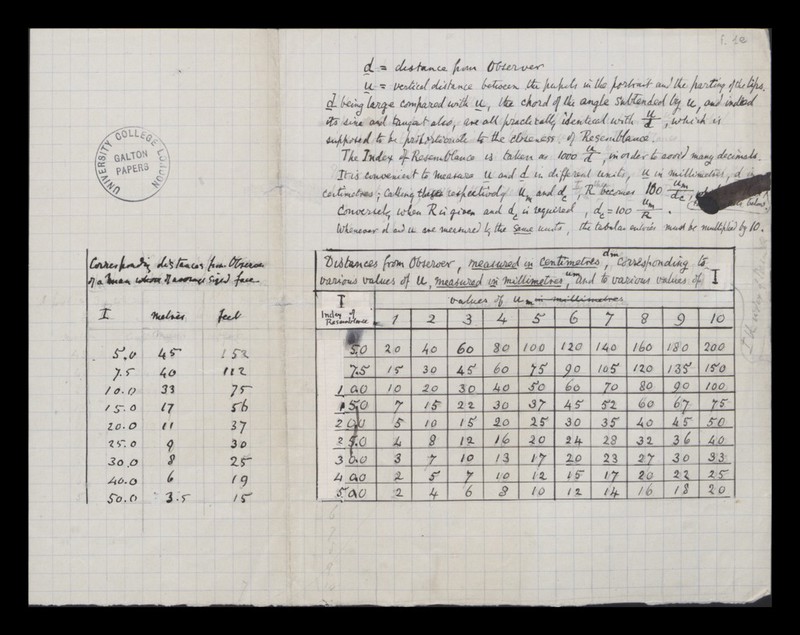 f. 1e
d = distance from Observer
u = vertical distance between the pupils in the portrait and the parting of the lips.
d being large compared with u, the chord of the angle subtended by u, and indeed
its sine and tangent also, are all practically identical with u/d, which is
supposed to be proportionate to the closeness of Resemblance.
The Index of Resemblance is taken as 1000 u/d, in order to avoid many decimals.
It is convenient to measure u and d in different units, u in millimetres, d in
centimetres; calling these respectively um and dc, R becomes 100 um/dc,
Conversely when R is given and dc is required, dc = 100 um/R.
Whenever d and u are measured by the same units, the tabular entries must be multiplied by 10.
UNIVERSITY COLLEGE LONDON
GALTON
PAPERS
Corresponding distances from Observer
of a man whose average sized face
I metres feet
5.0 45 152
7.5 40 112
10.0 33 75
15.0 17 56
20.0 11 37
25.0 9 30
30.0 8 25
40.0 6 19
50.0 3.5 15
Distances from Observer, measured in centimetres, dm corresponding to
various values of u, measured in millimetres, um and to various values of I
I values of um in millimetres
Index of
Resemblance 1 2 3 4 5 6 7 8 9 10
5.0 20 40 60 80 100 120 140 160 180 200
7.5 15 30 45 60 75 90 105 120 135 150
10.0 10 20 30 40 50 60 70 80 90 100
15.0 7 15 22 30 37 45 52 60 67 75
20.0 5 10 15 20 25 30 35 40 45 50
25.0 4 8 12 16 20 24 28 32 36 40
30.0 3 7 10 13 17 20 23 27 30 33
40.0 2 5 7 10 12 15 17 20 22 25
50.0 2 4 6 8 10 12 14 16 18 20